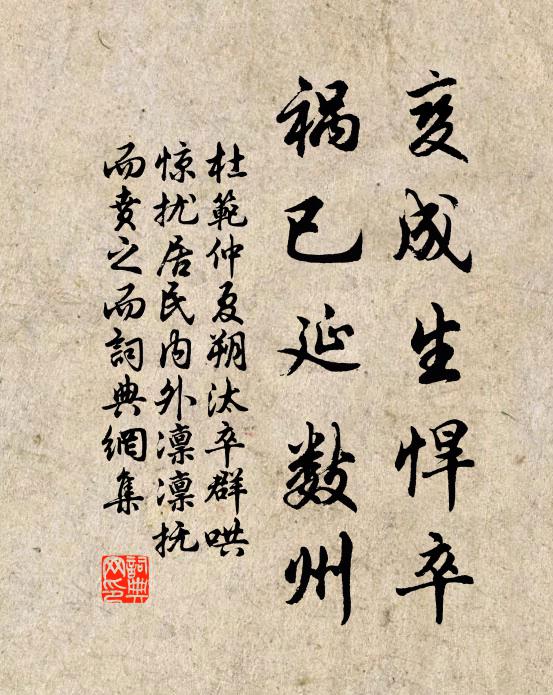 变成生悍卒
祸已延数州
杜範仲夏朔汰卒群哄
惊扰居民内外凛凛抚
而赉之而詞典網集
詞典
网印